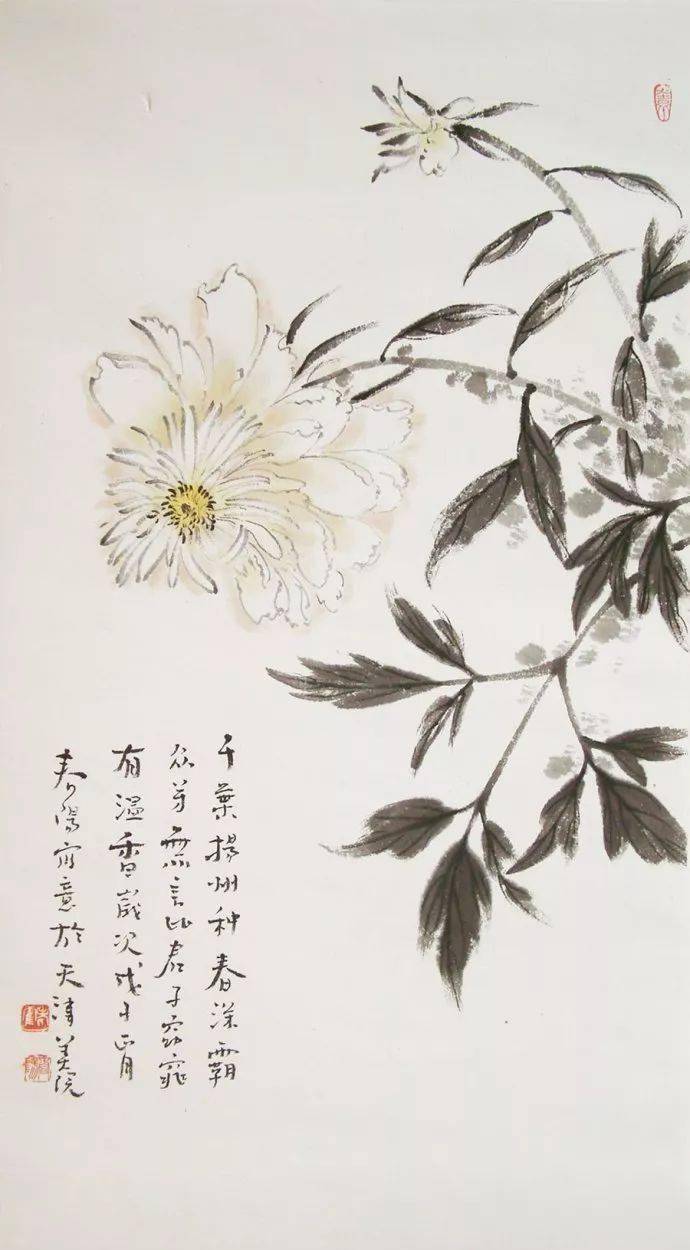 千葉揚州种春深霸
众芳無言比君子窈窕
有温香歲次戊子正月
春陽寫意於天津美院